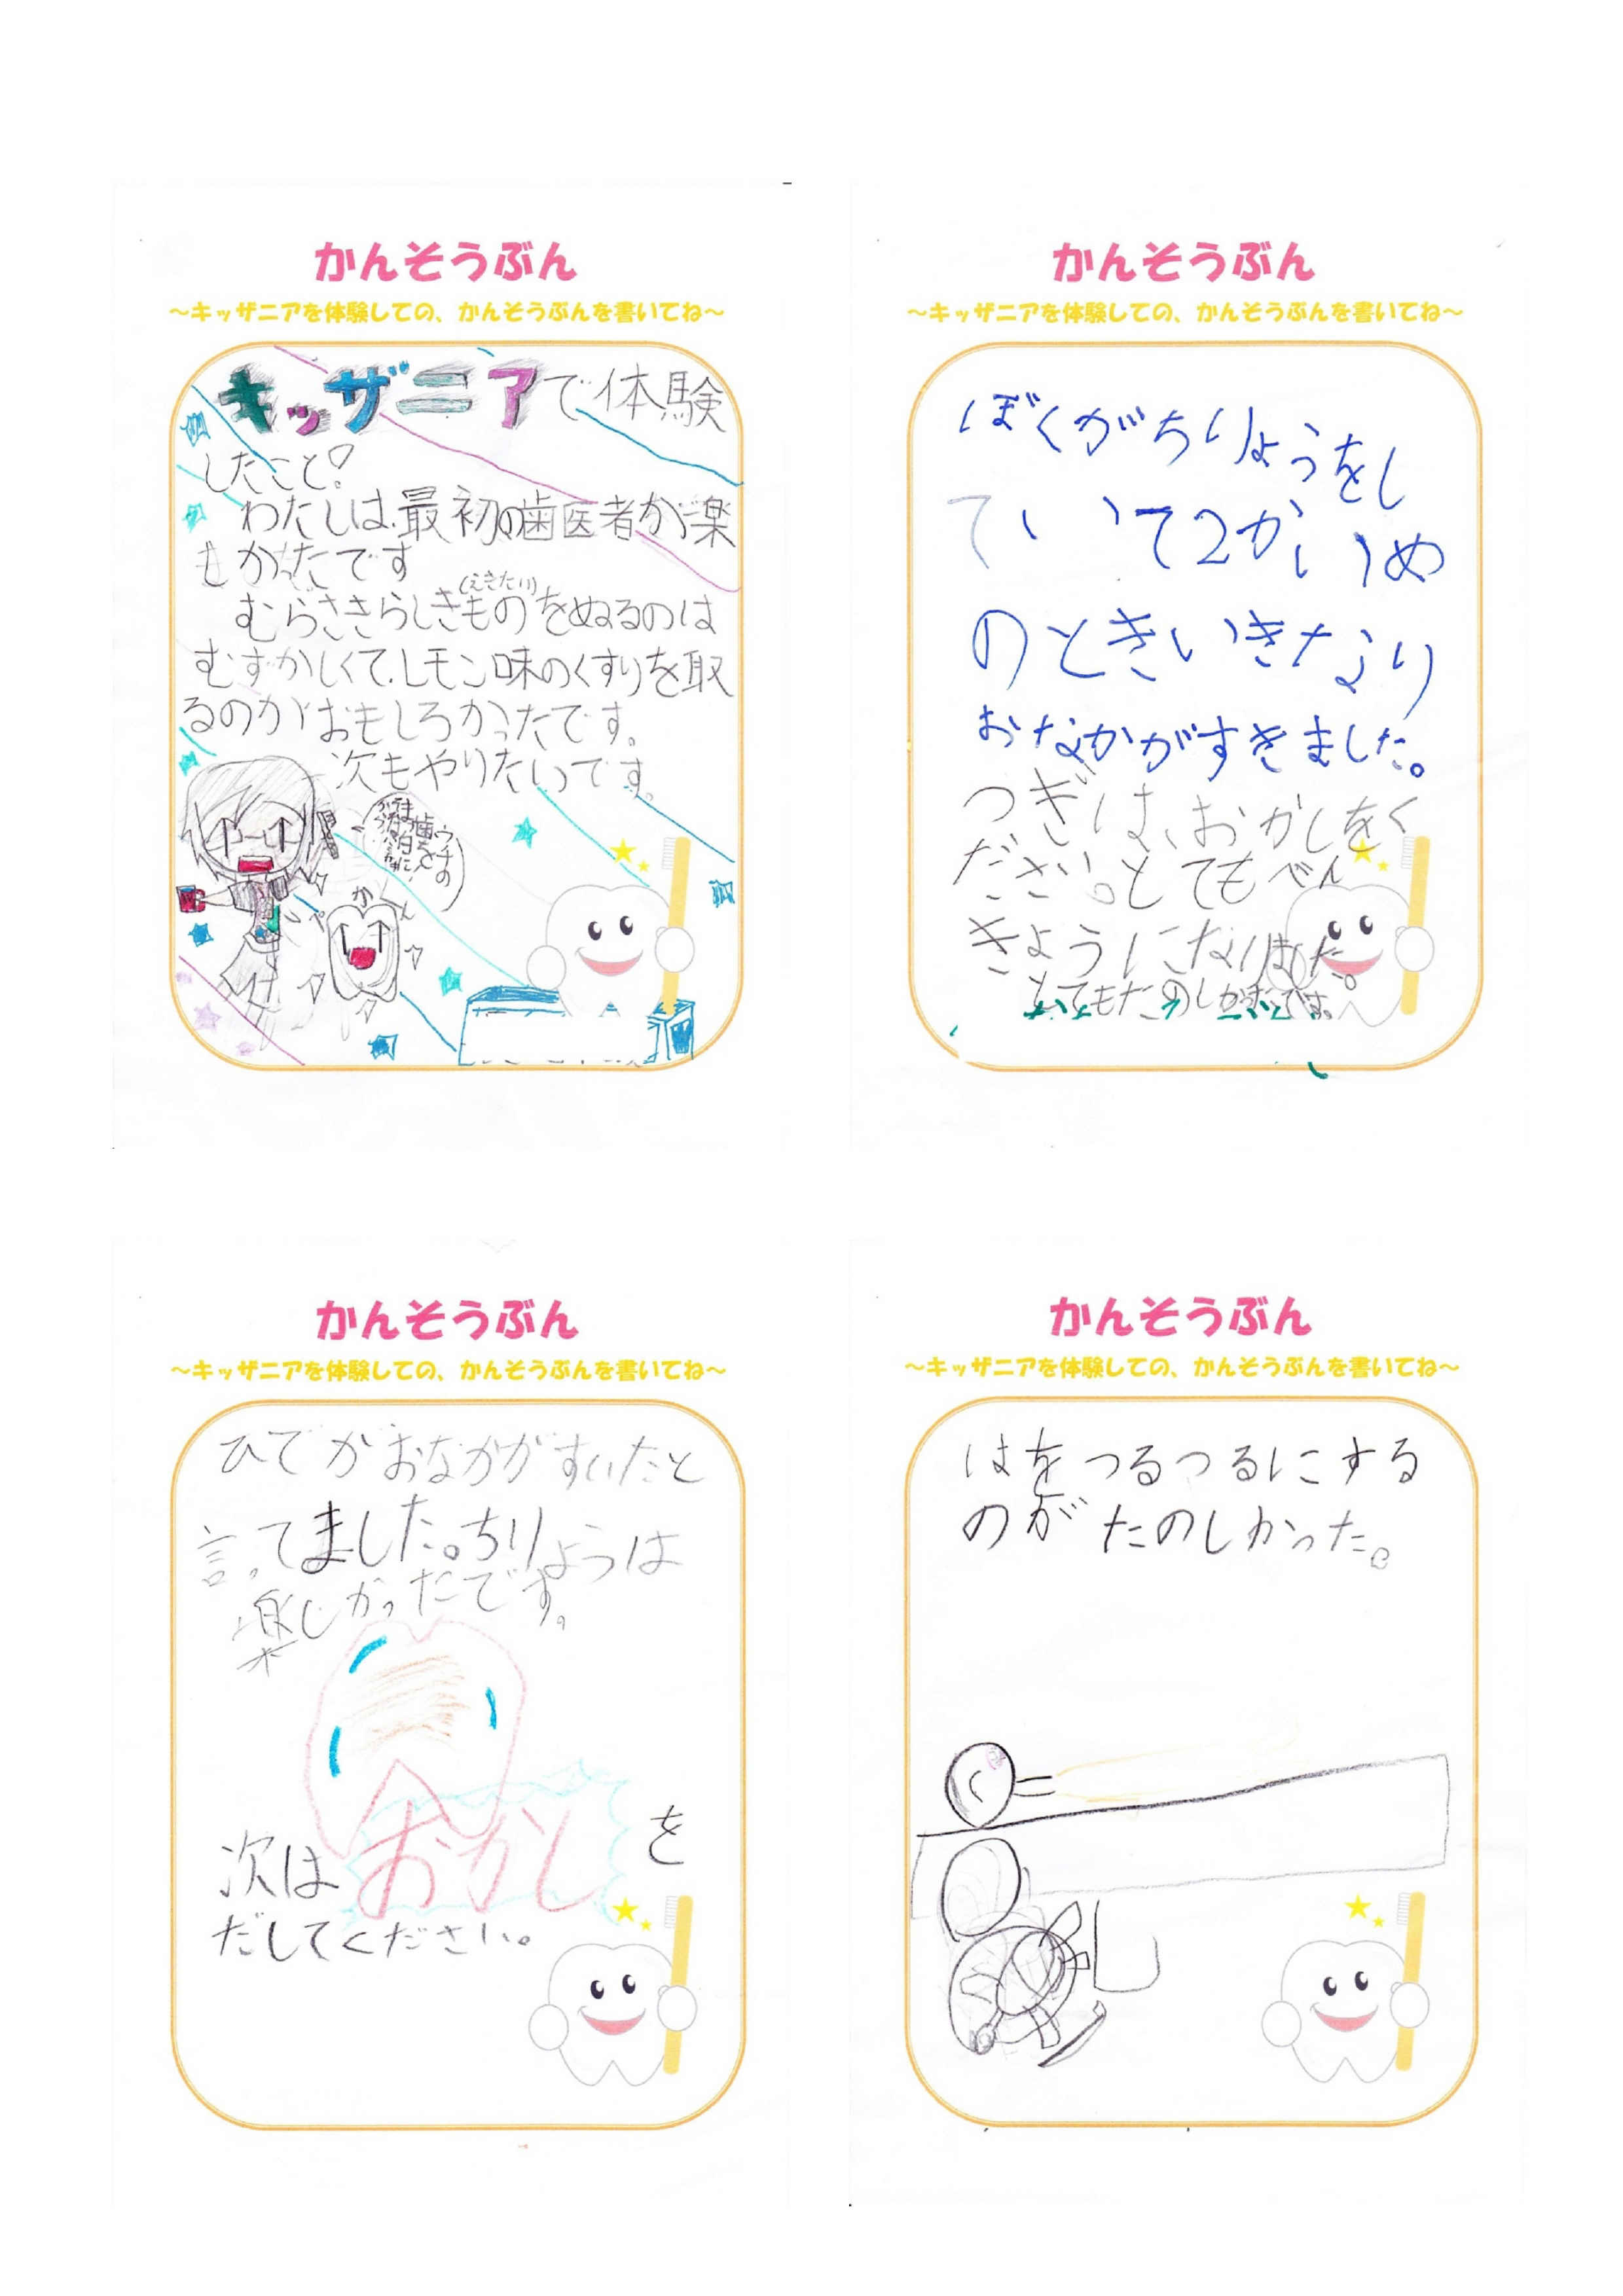 かんそうぶん
～キッザニアを体験しての、かんそうぶんを書いてね～
キッザニアで体験
したこと!
わたしは、最初の歯医者が楽
もかったです
(えきたい)
むらさきらしきものをぬるのは
むずかしくて、レモン味のくすりを取
るのがおもしろかったです。
次もやりたいです。
かんそうぶん
～キッザニアを体験しての、かんそうぶんを書いてね～
ぼくがちりょうをし
ていて2かいめ
のときいきなり
おなかがすきました。
つぎは、おかしをく
ださい。とてもべん
きょうになりました。
とてもたのしかったです。
かんそうぶん
～キッザニアを体験しての、かんそうぶんを書いてね～
ひでがおなかがすいたと
言ってました。ちりょうは
楽しかったです。
次はおかしを
だしてください。
かんそうぶん
～キッザニアを体験しての、かんそうぶんを書いてね～
はをつるつるにする
のがたのしかった。